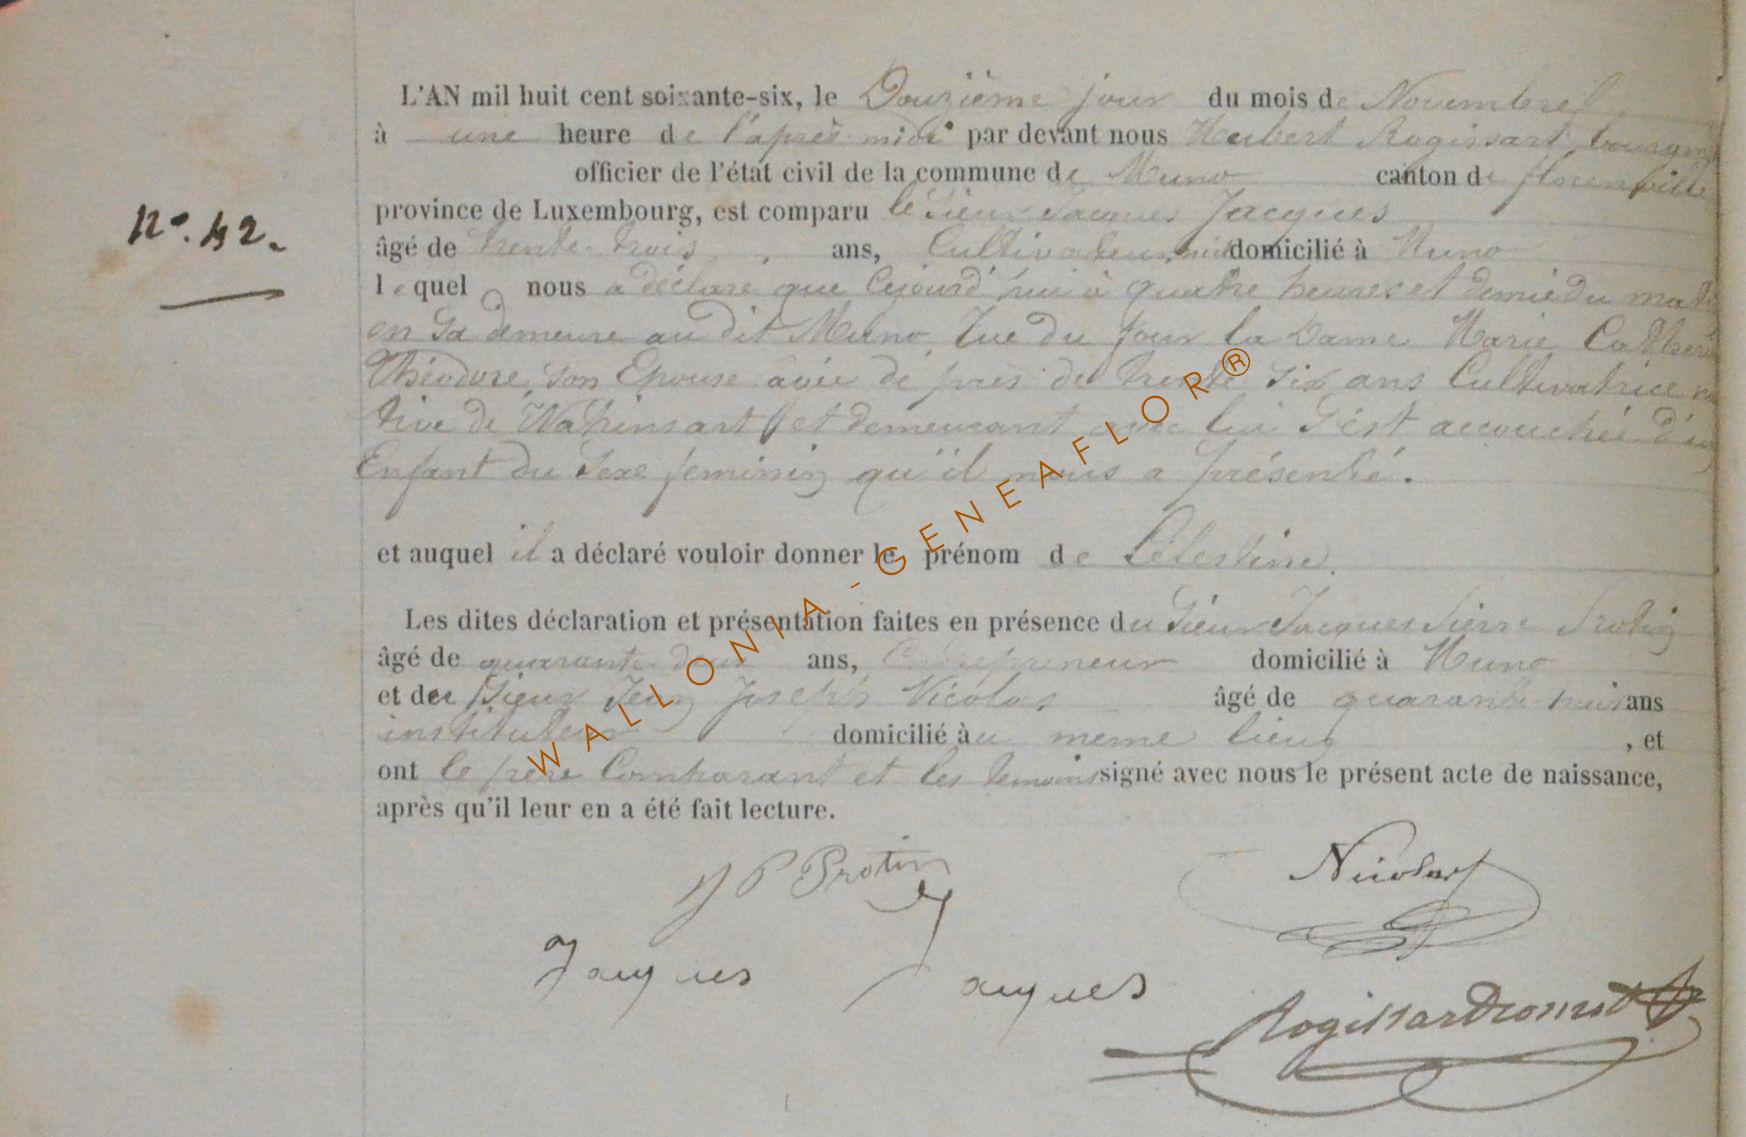 L'AN mil huit cent soixante-six, le Douzième jour du mois de Novembre
à une heure de l'après midi par devant nous Hubert Rogissart bourgm
officier de l'état civil de la commune de Muno canton de florenville
province de Luxembourg, est comparu le Sieur Jacques Jacques
N°. 42.
âgé de trente-trois ans, Cultivateur, domicilié à Muno
lequel nous a déclaré que Cejourd'hui à quatre heures et demie du mat
en sa demeure au dit Muno Rue du four la Dame Marie Cathérin
Théodore, son Epouse âgée de près de trente six ans Cultivatrice na
tive de Watrinsart et demeurant avec lui S'est accouchée d'un
Enfant du Sexe feminin qu'il nous a présenté.
et auquel il a déclaré vouloir donner le prénom de Célestine.
Les dites déclaration et présentation faites en présence du Sieur Jacques Pierre Protin
âgé de quarante deux ans, Entrepreneur domicilié à Muno
et du Sieur Jean Joseph Nicolas âgé de quarante ans
instituteur domicilié au meme lieu, et
ont le père Comparant et les temoins signé avec nous le présent acte de naissance,
après qu'il leur en a été fait lecture.
JP Protin
Nicolas
Jacques Jacques
Rogissart
WALLONIA-GENEAFLOR®